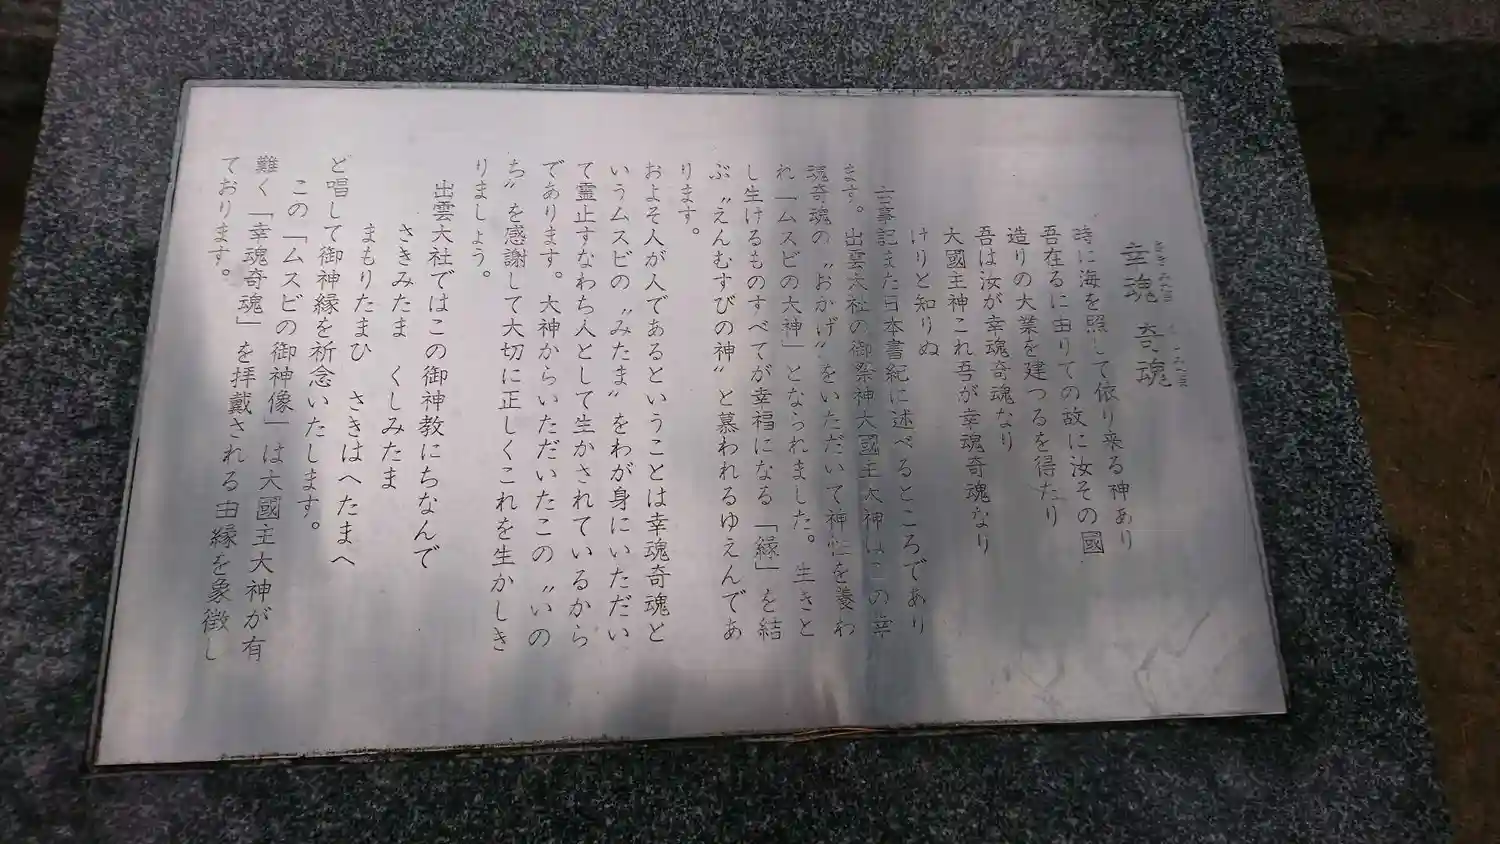 幸魂 奇魂
時に海を照して依り来る神あり
吾在るに由りての故に汝その國
造りの大業を建つるを得たり
吾は汝が幸魂奇魂なり
大國主神これ吾が幸魂奇魂なり
けりと知りぬ
古事記また日本書紀に述べるところであり
ます。出雲大社の御祭神大國主大神はこの幸
魂奇魂の〝おかげ〟をいただいて神性を養わ
れ「ムスビの大神」となられました。生きと
し生けるものすべてが幸福になる「縁」を結
ぶ〝えんむすびの神〟と慕われるゆえんであ
ります。
およそ人が人であるということは幸魂奇魂と
いうムスビの〝みたま〟をわが身にいただい
て霊止すなわち人として生かされているから
であります。大神からいただいたこの〝いの
ち〟を感謝して大切に正しくこれを生かしき
りましょう。
出雲大社ではこの御神教にちなんで
さきみたま くしみたま
まもりたまひ さきはへたまへ
と唱して御神縁を祈念いたします。
この「ムスビの御神像」は大國主大神が有
難く「幸魂奇魂」を拝戴される由縁を象徴し
ております。